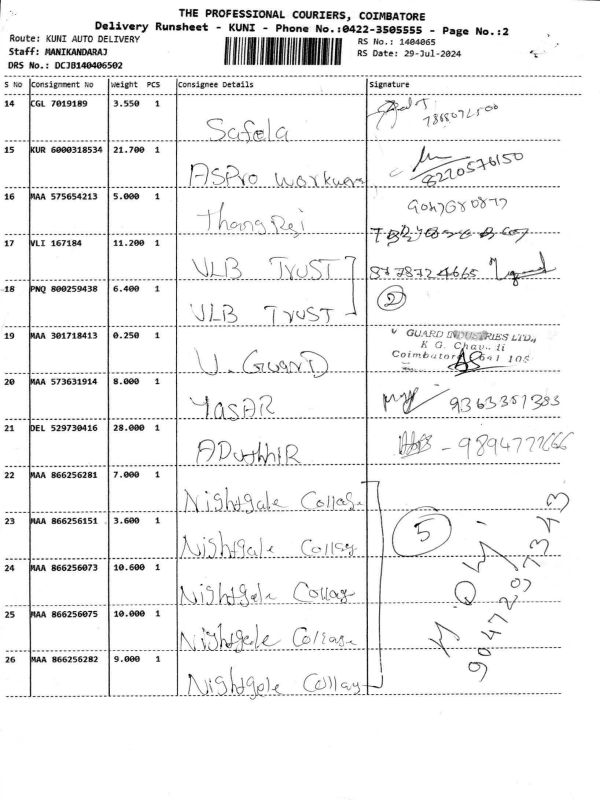 THE PROFESSIONAL COURIERS, COIMBATORE
Delivery Runsheet - KUNI - Phone No.:0422-3505555 - Page No.:2
Route: KUNI AUTO DELIVERY
RS No.: 1404065
Staff: MANIKANDARAJ
RS Date: 29-Jul-2024
DRS No.: DCJB140406502
S No Consignment No Weight PCS Consignee Details Signature
14 CGL 7019189 3.550 1
Safela
15 KUR 6000318534 21.700 1
ASPro workwers
8220576150
16 MAA 575654213 5.000 1
17 VLI 167184 11.200 1
VLB TRUST
8778724665
18 PNQ 800259438 6.400 1
VLB TRUST
2
19 MAA 301718413 0.250 1
U. GuanD
GUARD INDUSTRIES LTD.,
K G. Chavadi
Coimbatore 641 105
20 MAA 573631914 8.000 1
YasAR
21 DEL 529730416 28.000 1
22 MAA 866256281 7.000 1
Nightgale Collage
23 MAA 866256151 3.600 1
Nightgale Collay
24 MAA 866256073 10.600 1
Nightgale Collage
25 MAA 866256075 10.000 1
Nightgale Collage
26 MAA 866256282 9.000 1
Nightgale Collay
5
9047207343